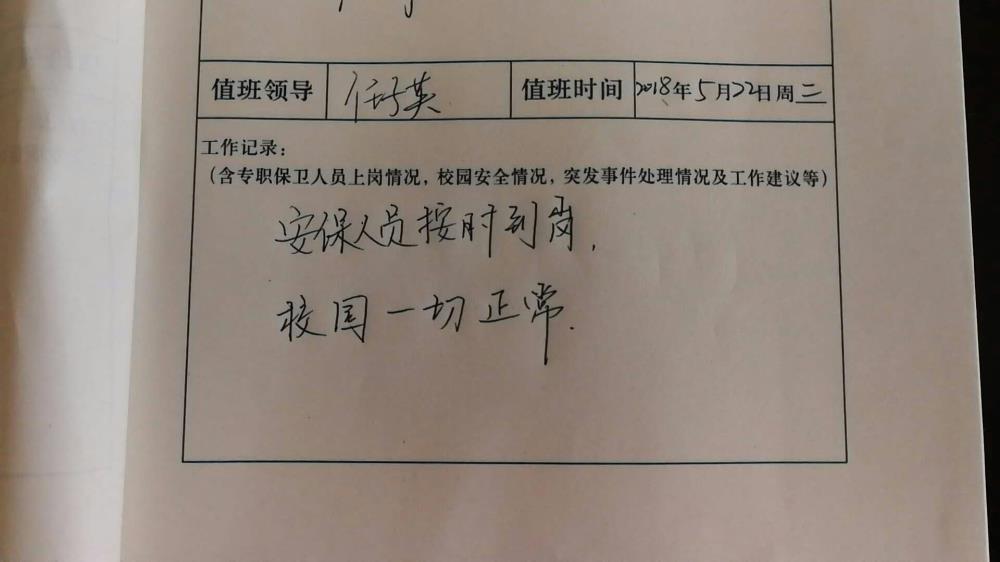 值班领导 任巧英 值班时间 2018年5月22日周二
工作记录：
（含专职保卫人员上岗情况，校园安全情况，突发事件处理情况及工作建议等）
安保人员按时到岗，
校园一切正常.